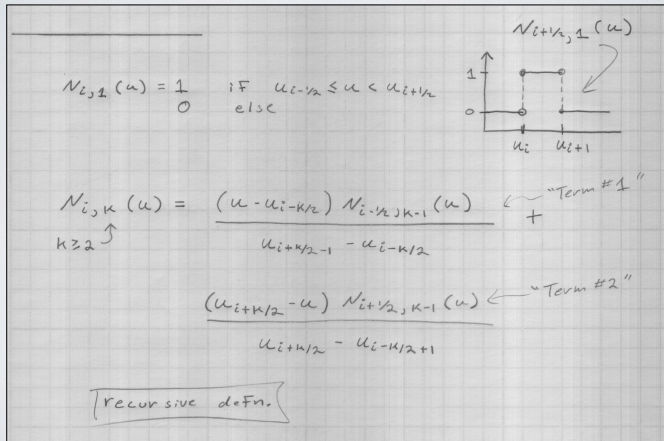 N_{i+1/2, 1}(u)
N_{i,1}(u) = 1 if u_{i-1/2} ≤ u < u_{i+1/2}
0 else
1
0
u_i u_{i+1}
N_{i,K}(u) = (u - u_{i-K/2}) N_{i-1/2, K-1}(u) / u_{i+K/2-1} - u_{i-K/2} + "Term #1"
K≥2
(u_{i+K/2} - u) N_{i+1/2, K-1}(u) / u_{i+K/2} - u_{i-K/2+1} "Term #2"
recursive defn.